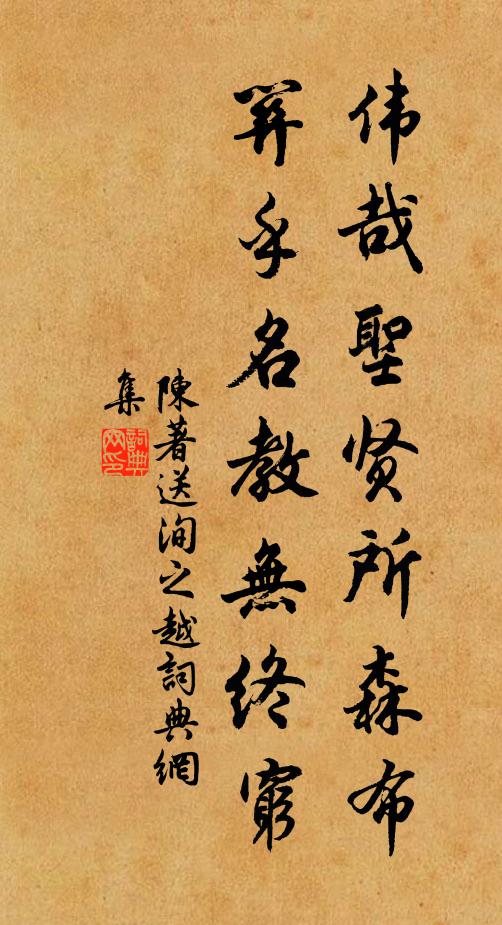 伟哉聖贤所森布
羿乎名教無终窮
陳著送洵之越詞典網
集
詞典
网印